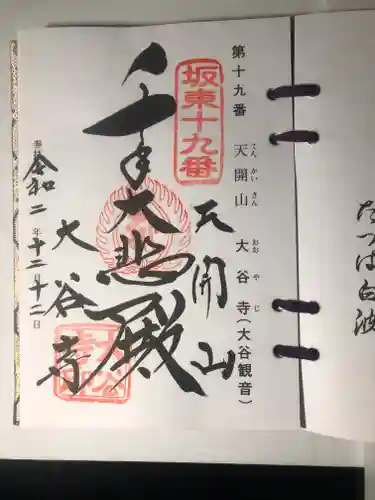 第十九番 天開山 大谷寺(大谷観音)
てんかいさん おおやじ
坂東十九番
天開山
千手大悲殿
大谷寺
令和二年十二月十二日